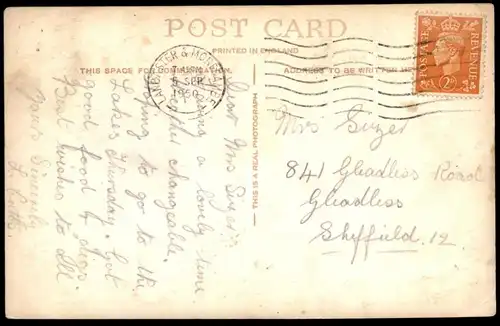 POST CARD
PRINTED IN ENGLAND
THIS SPACE FOR COMMUNICATION.
ADDRESS TO BE WRITTEN HE
THIS IS A REAL PHOTOGRAPH
LANCASTER & MORECAMBE
SEP
1950
POSTAGE
REVENUE
2D
Dear Mrs
Having a lovely time
changeable.
Going to go to the
Lakes Thursday. Got
good food &
Best wishes to all
Yours Sincerely
Mrs
841 Gleadless Road
Gleadless
Sheffield. 12